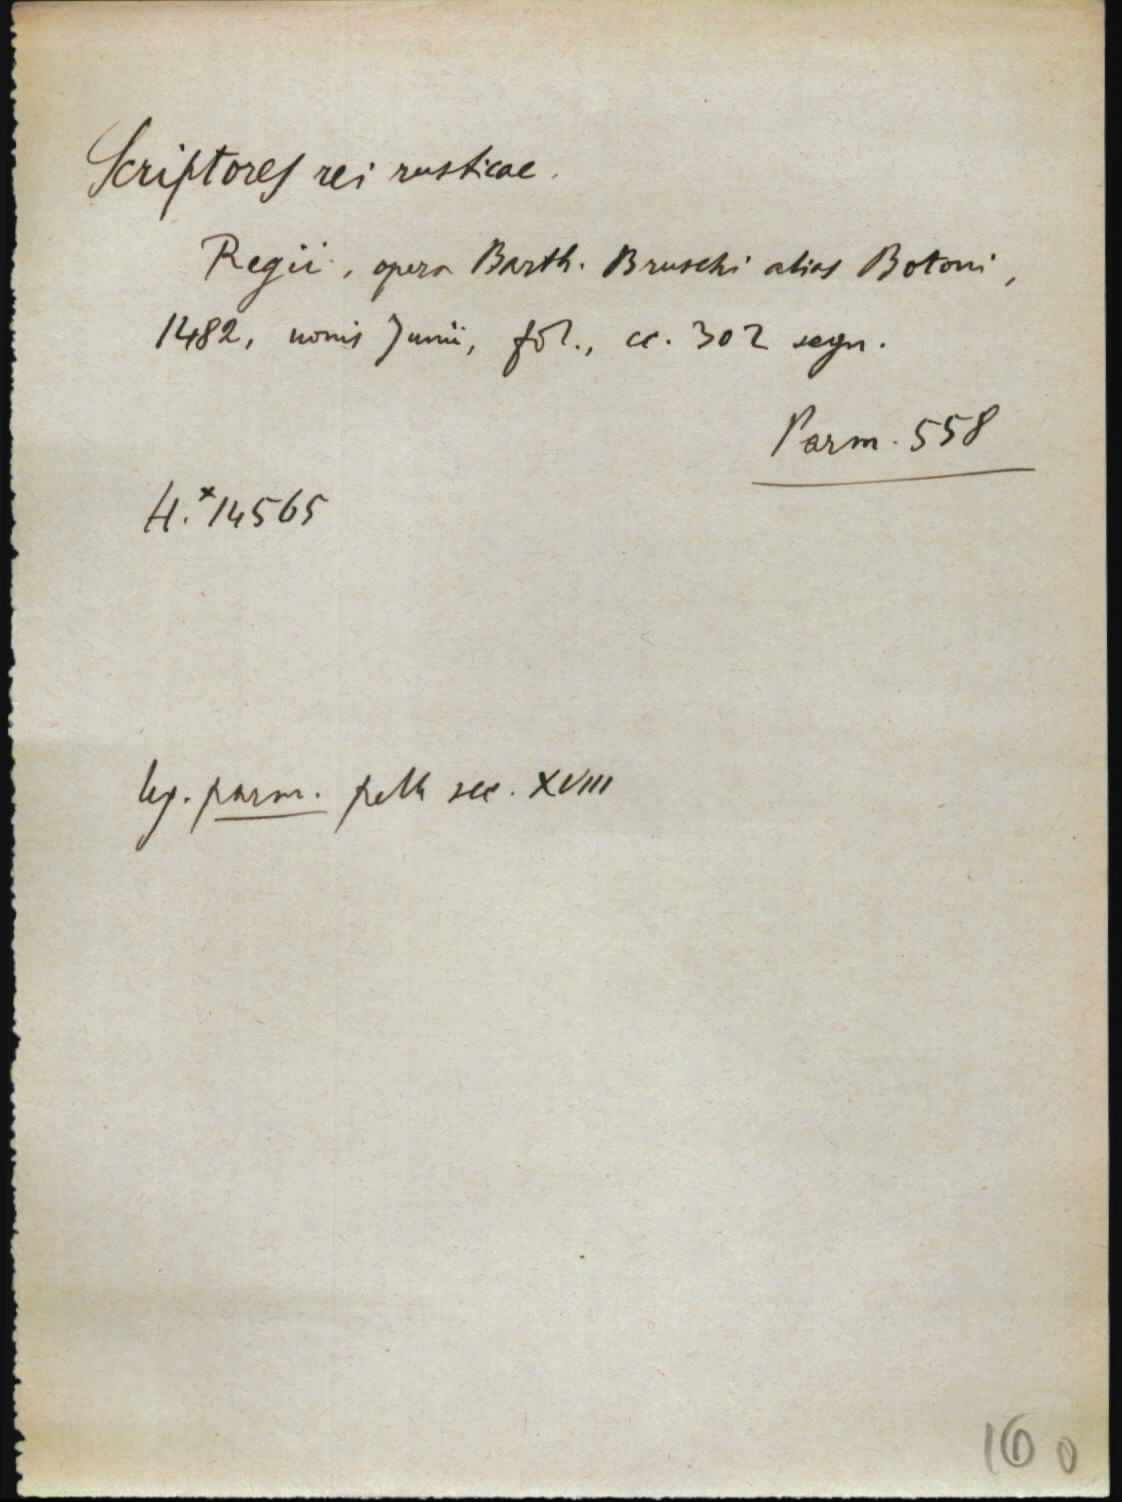 Scriptores rei rusticae.
Regii, opera Barth. Bruschi alias Botoni,
1482, nonis Junii, fol., cc. 302 segn.
Parm. 558
H.*14565
leg. parm. pelle sec. XVIII
160